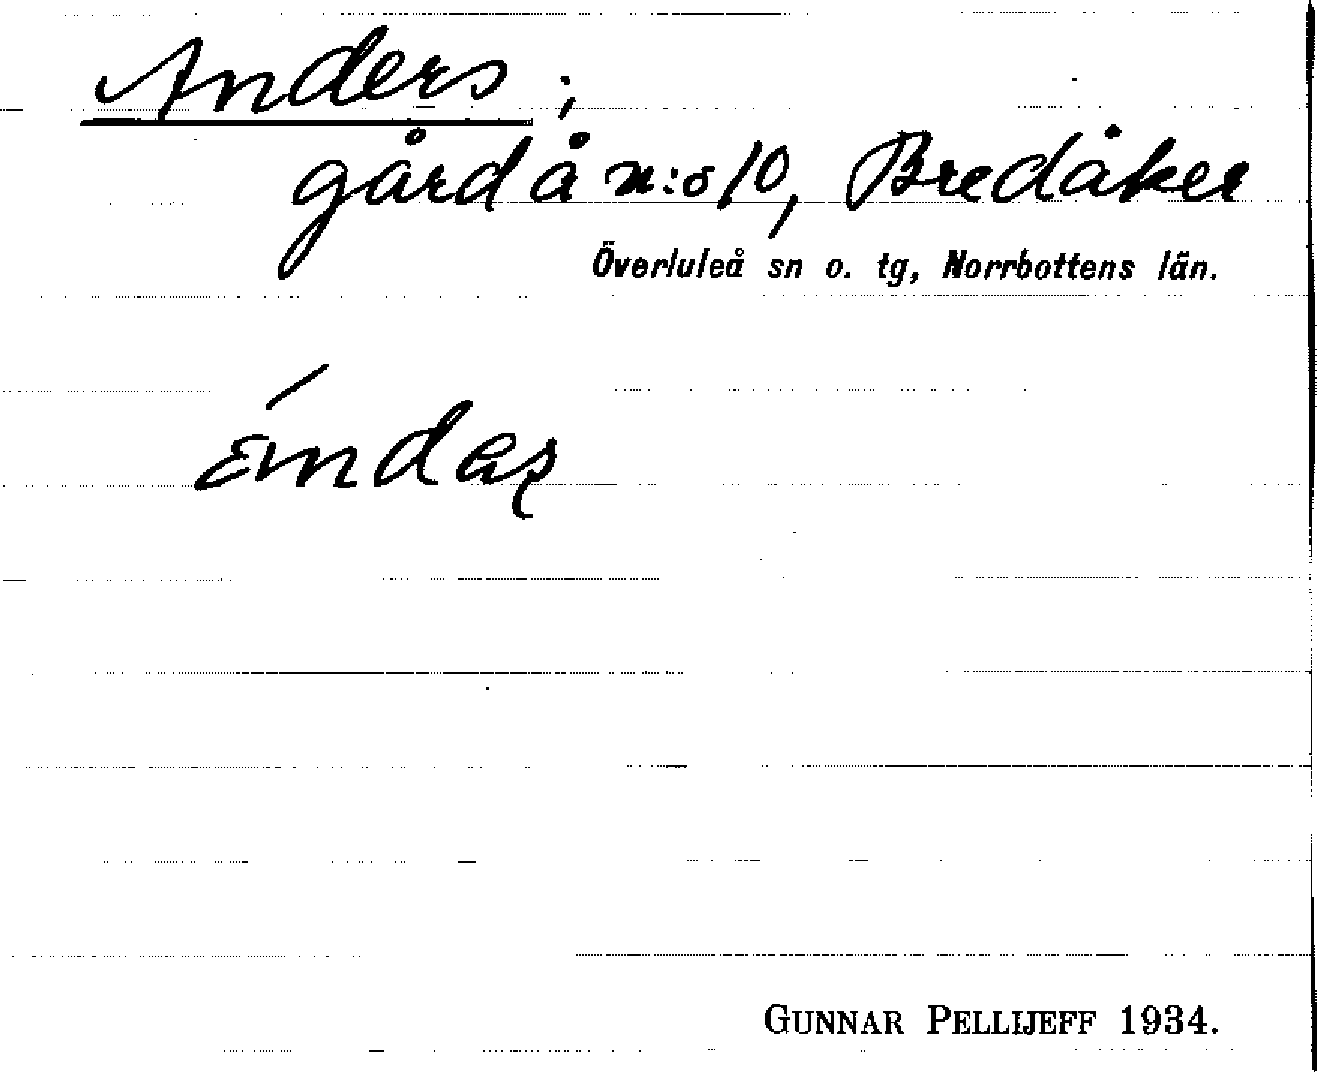 Anders;
gård å n:o 10, Bredåker
Överluleå sn o. tg, Norrbottens län.
GUNNAR PELLIJEFF 1934.